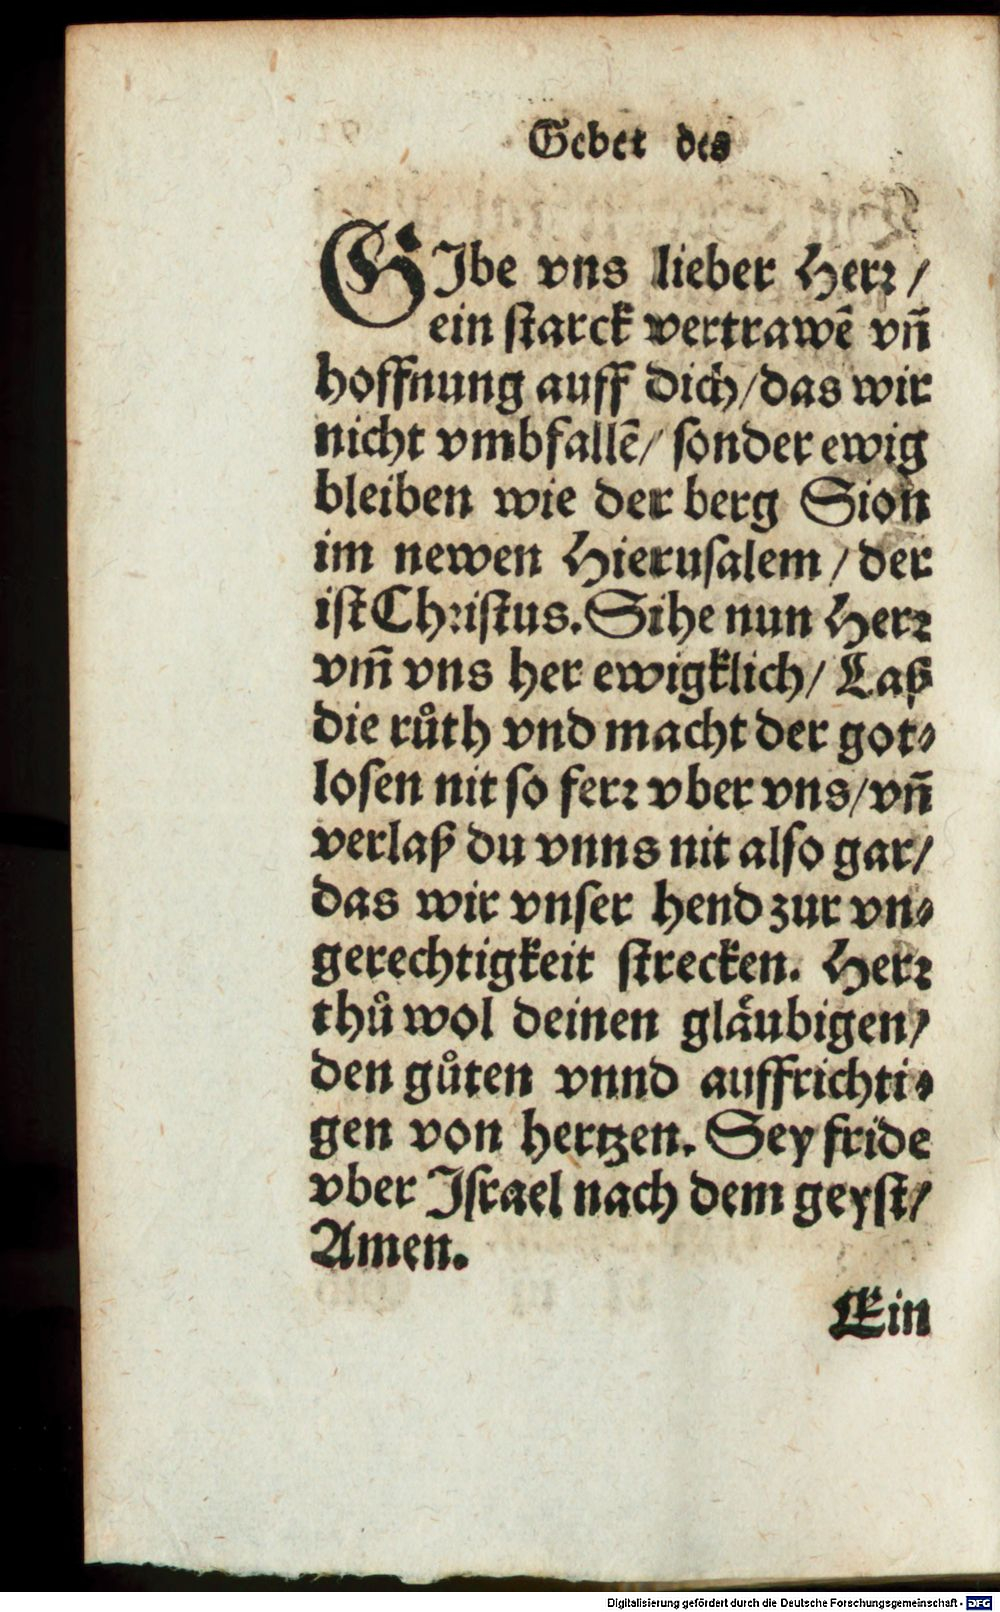 Gebet des
GIbe vns lieber Herr /
ein starck vertrawẽ vñ
hoffnung auff dich / das wir
nicht vmbfallẽ / sonder ewig
bleiben wie der berg Sion
im newen Hierusalem / der
ist Christus. Sihe nun Herr
vm̃ vns her ewigklich / Laß
die růth vnd macht der got⸗
losen nit so ferr vber vns / vñ
verlaß du vnns nit also gar /
das wir vnser hend zur vn⸗
gerechtigkeit strecken. Herr
thů wol deinen glaͤubigen /
den gůten vnnd auffrichti⸗
gen von hertzen. Sey fride
vber Israel nach dem geyst /
Amen.
Ein
Digitalisierung gefördert durch die Deutsche Forschungsgemeinschaft - DFG